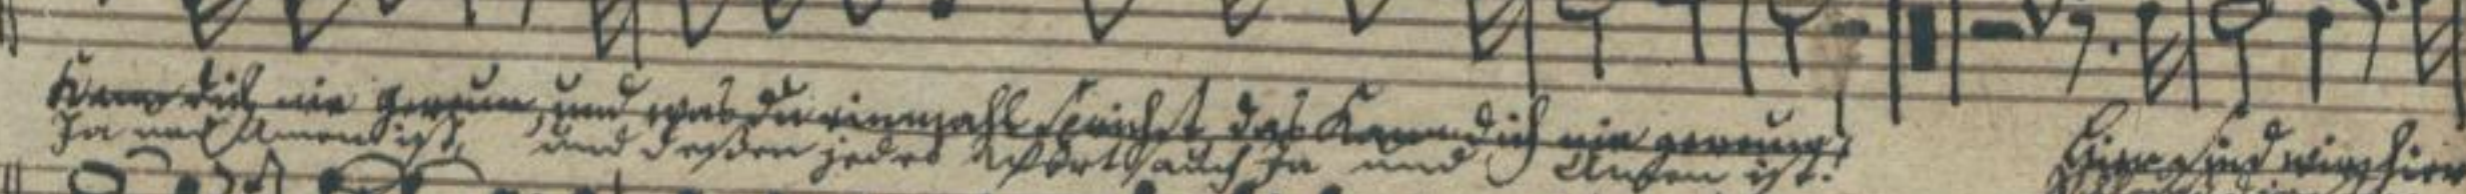 Kann dich nie gereun, und was du einmahl sprichst das Kann dich nie gereun,
Ja und Amen ist, und deßen jedes Wort auch Ja und Amen ist.
Hier sind wir, hier